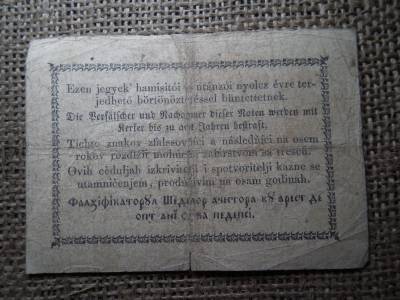 Ezen jegyek hamisítói s utánzói nyolcz évre ter-
jedhető börtönöztetéssel büntettetnek.
Die Verfälscher und Nachahmer dieser Noten werden mit
Kerker bis zu acht Jahren bestraft.
Tichto znakov zfalssovňjci a následňjci na osem
rokov rozdlžit žalárstvom sa trescú.
Ovih céduljah izkrivitelji i spotvoritelji kazne se
utamničenjem, produživim na osam godinah.
Фалзіфікаторꙋл Шіделор ачестора кꙋ арест де
опт ані се ва педепсі.